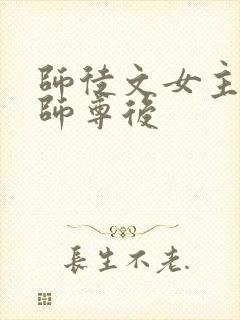 師徒文女主
師尊後
長生不老.